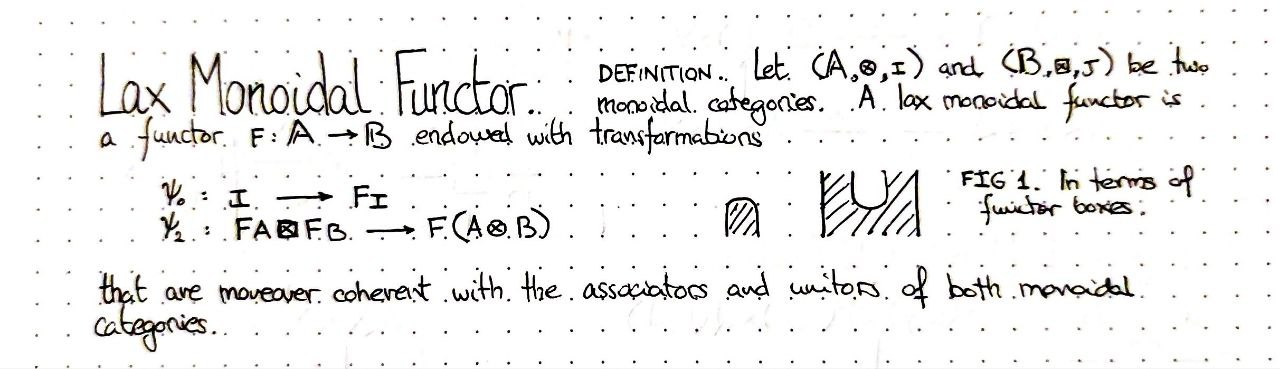 Lax Monoidal Functor. DEFINITION. Let (A,⊗,I) and (B,⊠,J) be two
monoidal categories. A lax monoidal functor is
a functor F: A → B endowed with transformations
ψ₀ : I → FI
ψ₂ : FA⊠FB → F(A⊗B)
FIG 1. In terms of
functor boxes.
that are moreover coherent with the associators and unitors of both monoidal
categories.